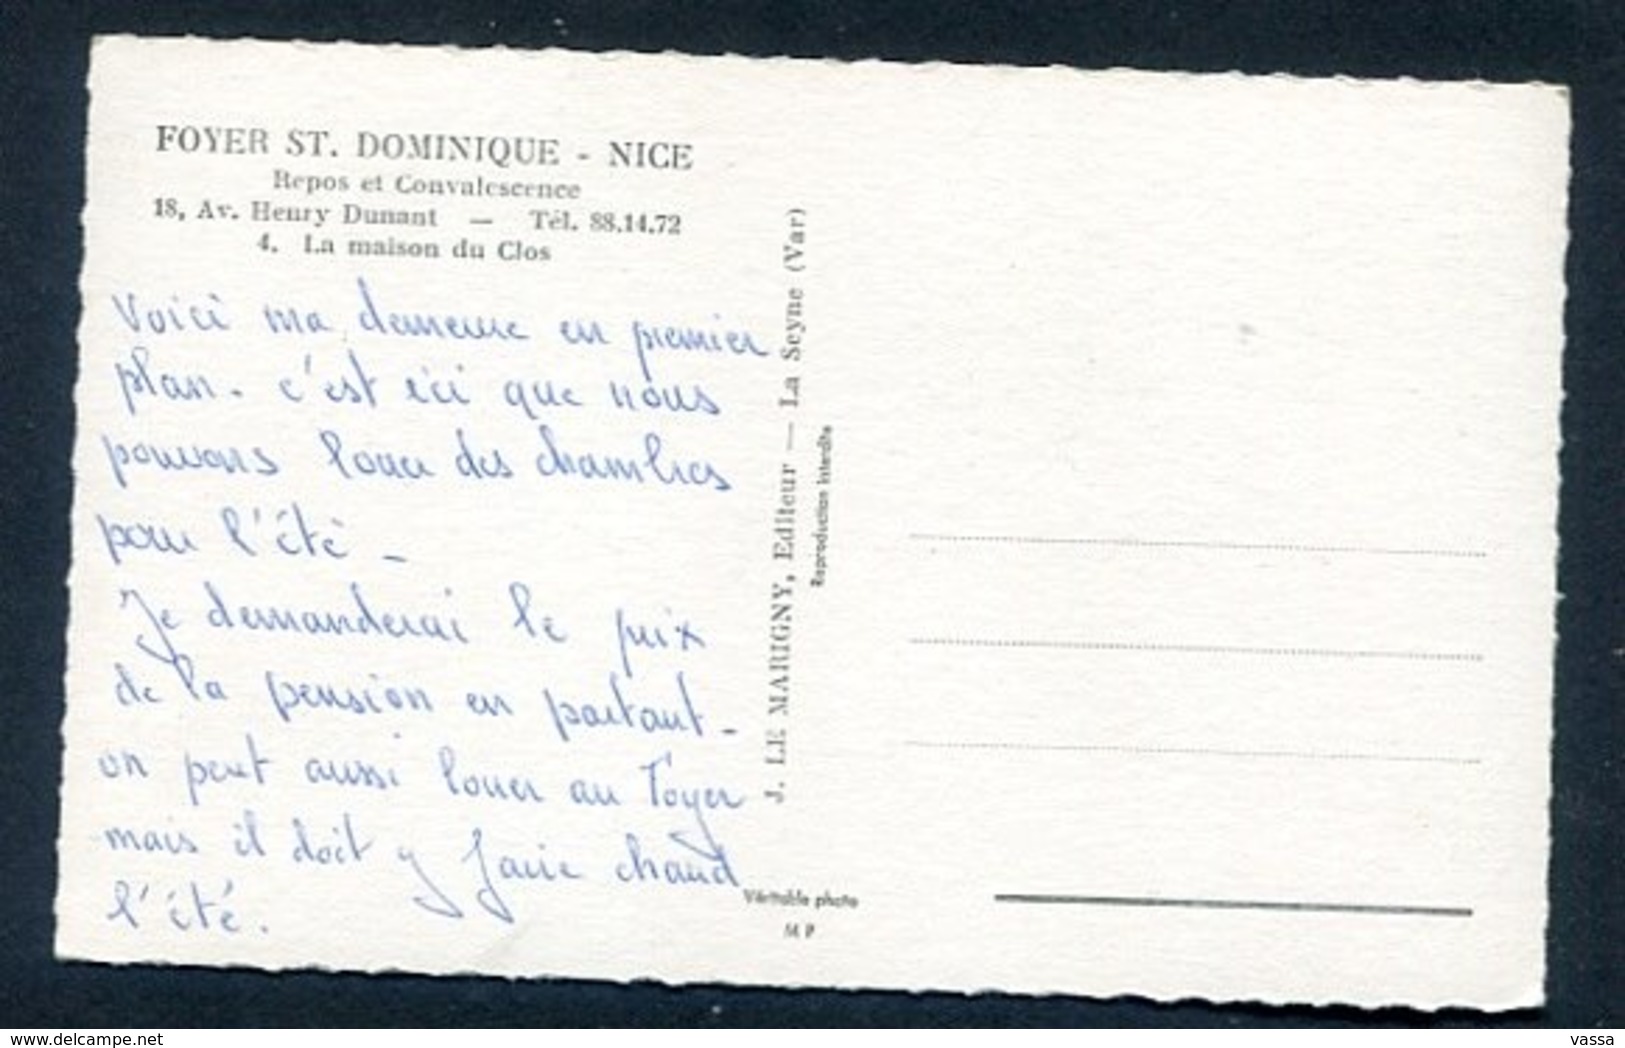 FOYER ST. DOMINIQUE - NICE
Repos et Convalescence
18, Av. Henry Dunant — Tél. 88.14.72
4. La maison du Clos
Voici ma demeure en premier
plan. c'est ici que nous
pouvons louer des chambres
pour l'été -
Je demanderai le prix
de la pension en partant -
on peut aussi louer au Foyer
mais il doit y faire chaud
l'été.
J. LE MARIGNY, Editeur — La Seyne (Var)
Reproduction interdite
Véritable photo
M P
delcampe.net
vassa